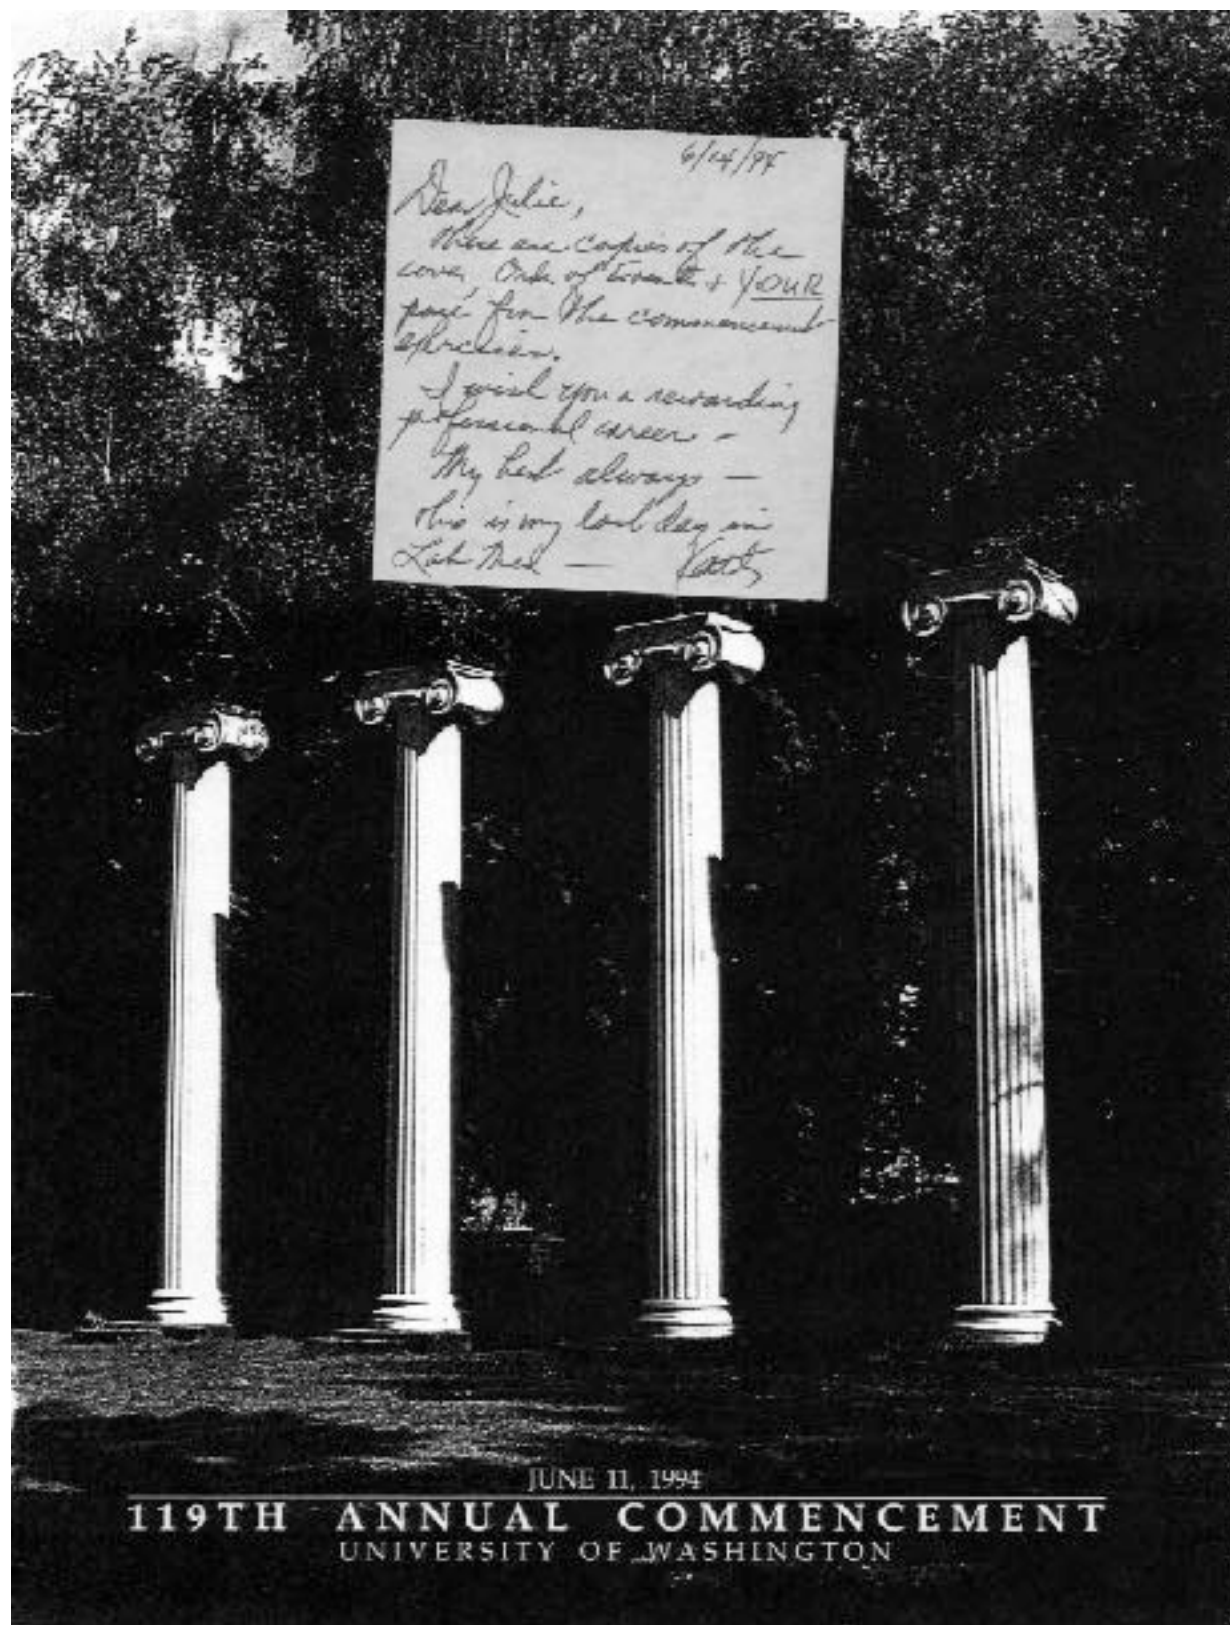 6/14/94
Dear Julie,
these are copies of the
cover, Order of Events + YOUR
page from the commencement
exercises.
I wish you a rewarding
professional career -
My best always —
this is my last day in
Lab Med —
JUNE 11, 1994
119TH ANNUAL COMMENCEMENT
UNIVERSITY OF WASHINGTON